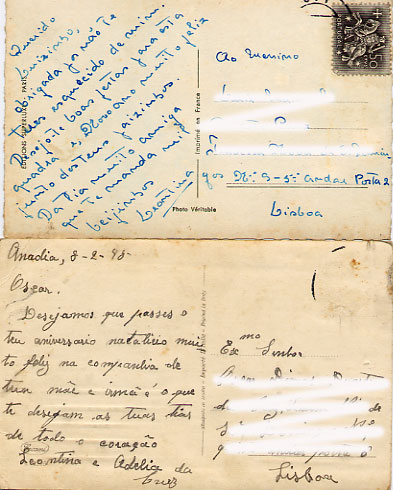 Querido
Luizinho,
Obrigada por não te
teres esquecido de mim.
Desejo-te boas festas para esta
quadra e Novo ano muito feliz
junto dos teus paizinhos.
Da tia muito amiga
que te manda mil
beijinhos
Leontina
EDITIONS SUPERLUXE - PARIS
Imprimé en France
Photo Véritable
Ao menino
gos Nº 9-5º andar Porta 2
Lisboa
Anadia, 8-2-45
Oscar.
Desejamos que passes o
teu aniversario natalicio mui
to feliz na companhia de
tua mãe e irmã é o que
te desejam as tuas tias
de todo o coração
Leontina e Adelia da
Cruz
Exmo Senhor
Lisboa